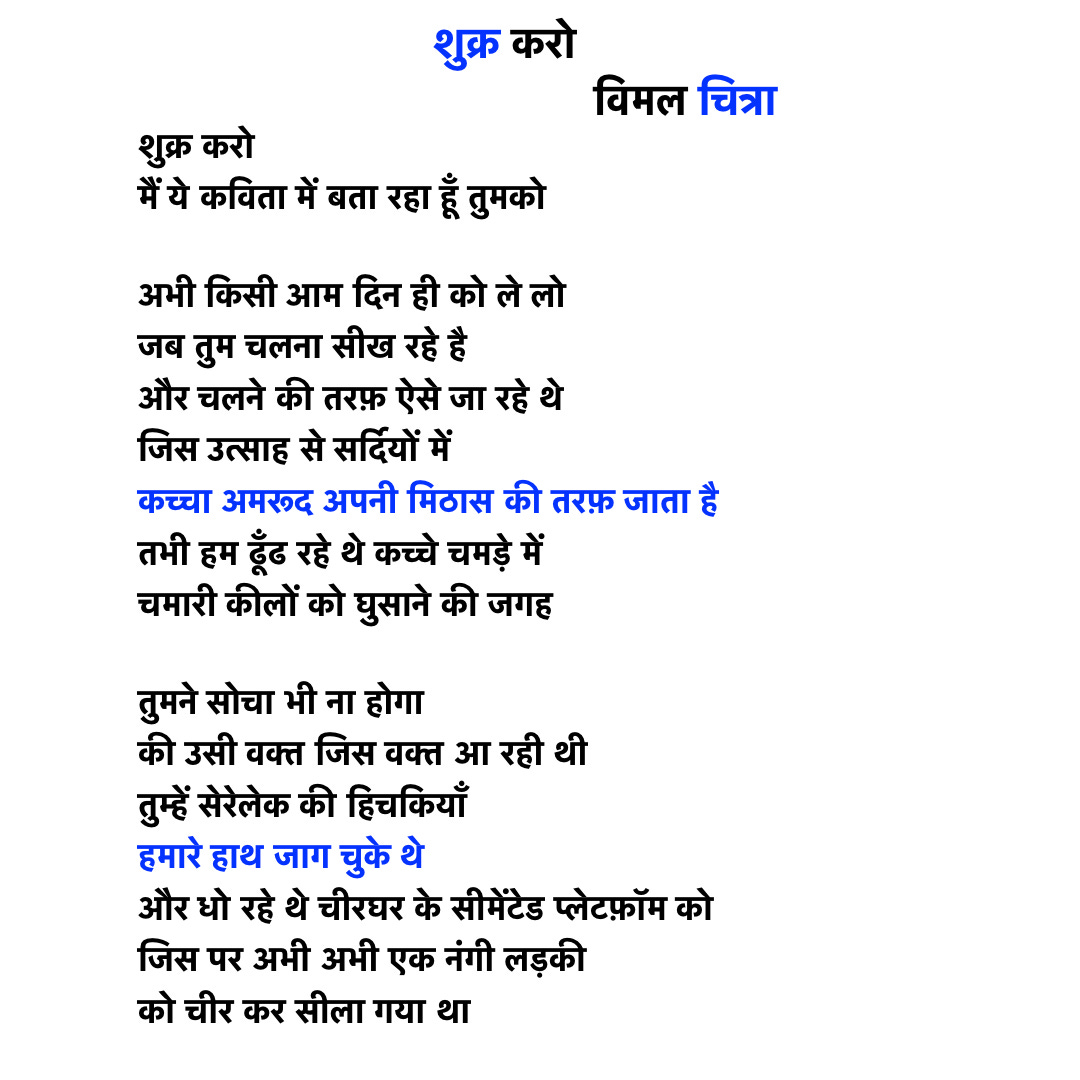 शुक्र करो
विमल चित्रा
शुक्र करो
मैं ये कविता में बता रहा हूँ तुमको
अभी किसी आम दिन ही को ले लो
जब तुम चलना सीख रहे है
और चलने की तरफ़ ऐसे जा रहे थे
जिस उत्साह से सर्दियों में
कच्चा अमरूद अपनी मिठास की तरफ़ जाता है
तभी हम ढूँढ रहे थे कच्चे चमड़े में
चमारी कीलों को घुसाने की जगह
तुमने सोचा भी ना होगा
की उसी वक्त जिस वक्त आ रही थी
तुम्हें सेरेलेक की हिचकियाँ
हमारे हाथ जाग चुके थे
और धो रहे थे चीरघर के सीमेंटेड प्लेटफ़ॉम को
जिस पर अभी अभी एक नंगी लड़की
को चीर कर सीला गया था